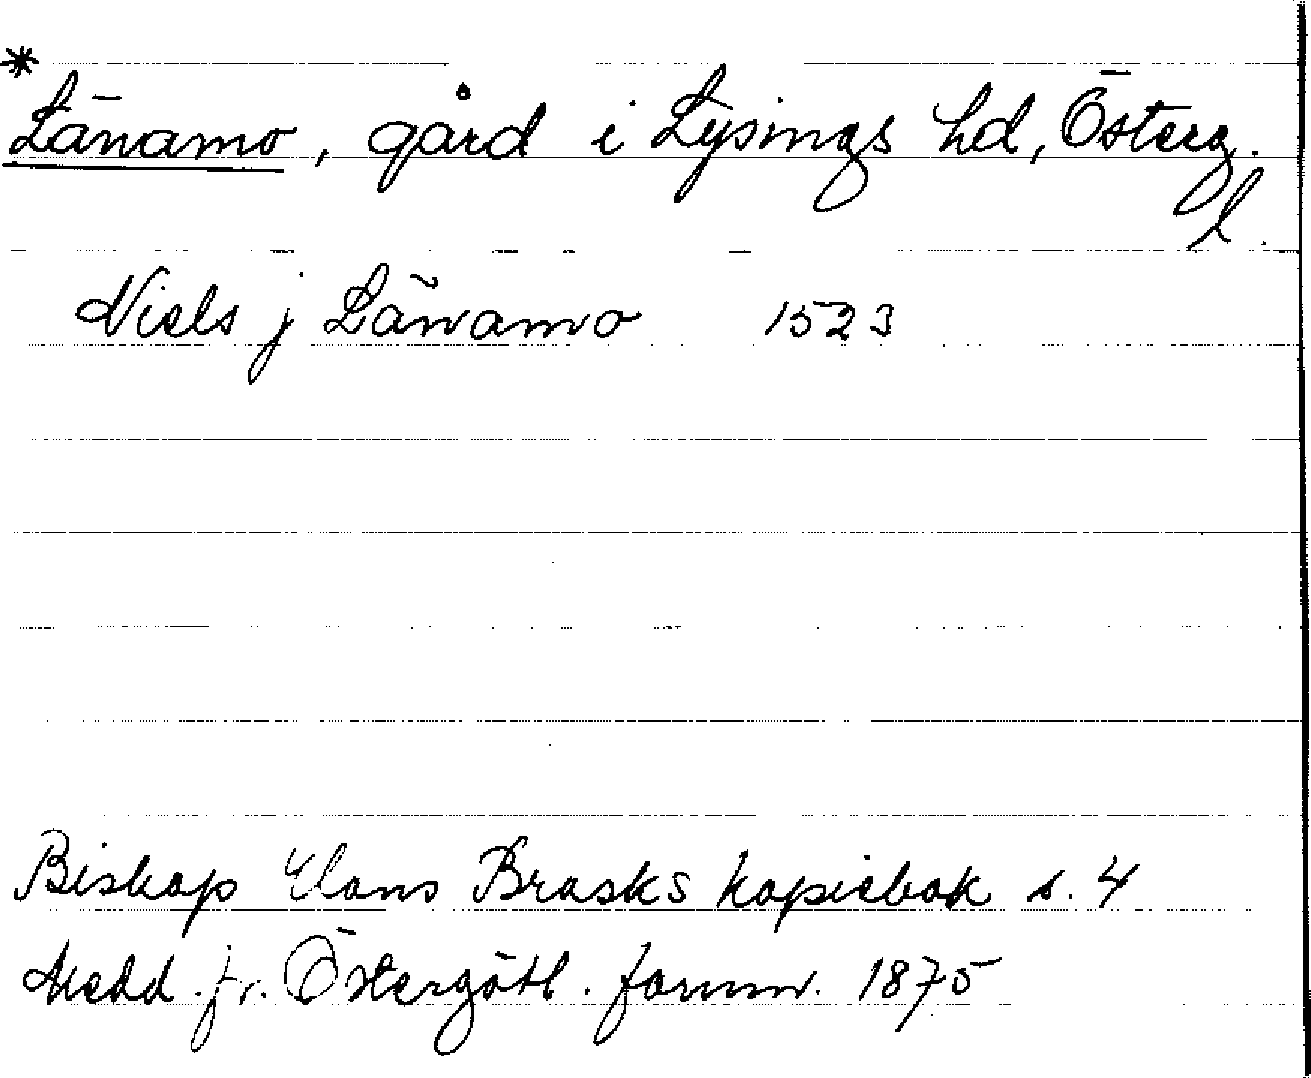 * Länamo, gård i Lysings hd, Österg.
l.
Niels j Länamo 1523
Biskop Clans Brasks kopiebok s. 4
Medd. fr. Östergötl. fornm. 1875